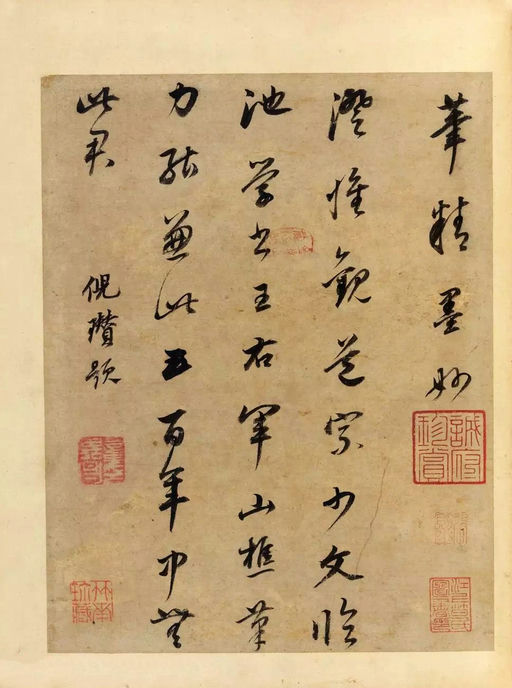 筆精墨妙
澄懷觀道宗少文臨
池学书王右軍山樵筆
力能兼此五百年中無
此君
倪瓚題